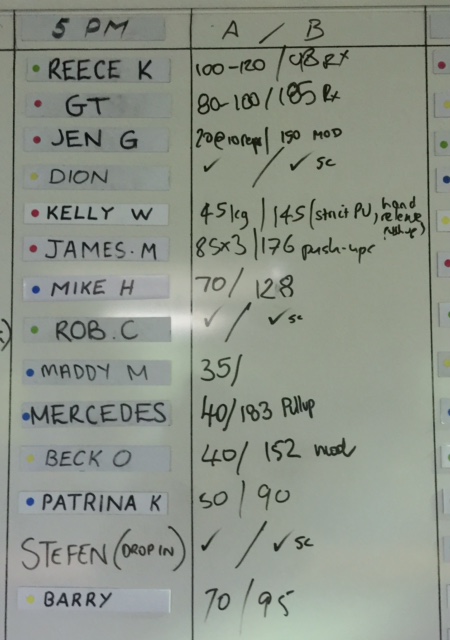 5 PM A / B
REECE K 100-120 / 98 RX
GT 80-100 / 185 Rx
JEN G 20@10reps | 150 MOD
DION ✓ / ✓ sc
KELLY W 45kg | 145 (strict PU, hand release pushups)
JAMES.M 85x3 | 176 push-ups
MIKE H 70 / 128
ROB.C ✓ / ✓ sc
MADDY M 35/
MERCEDES 40/183 Pullup
BECK O 40/ 152 mod
PATRINA K 50 | 90
STEFEN (DROP IN) ✓ / ✓ sc
BARRY 70 / 95